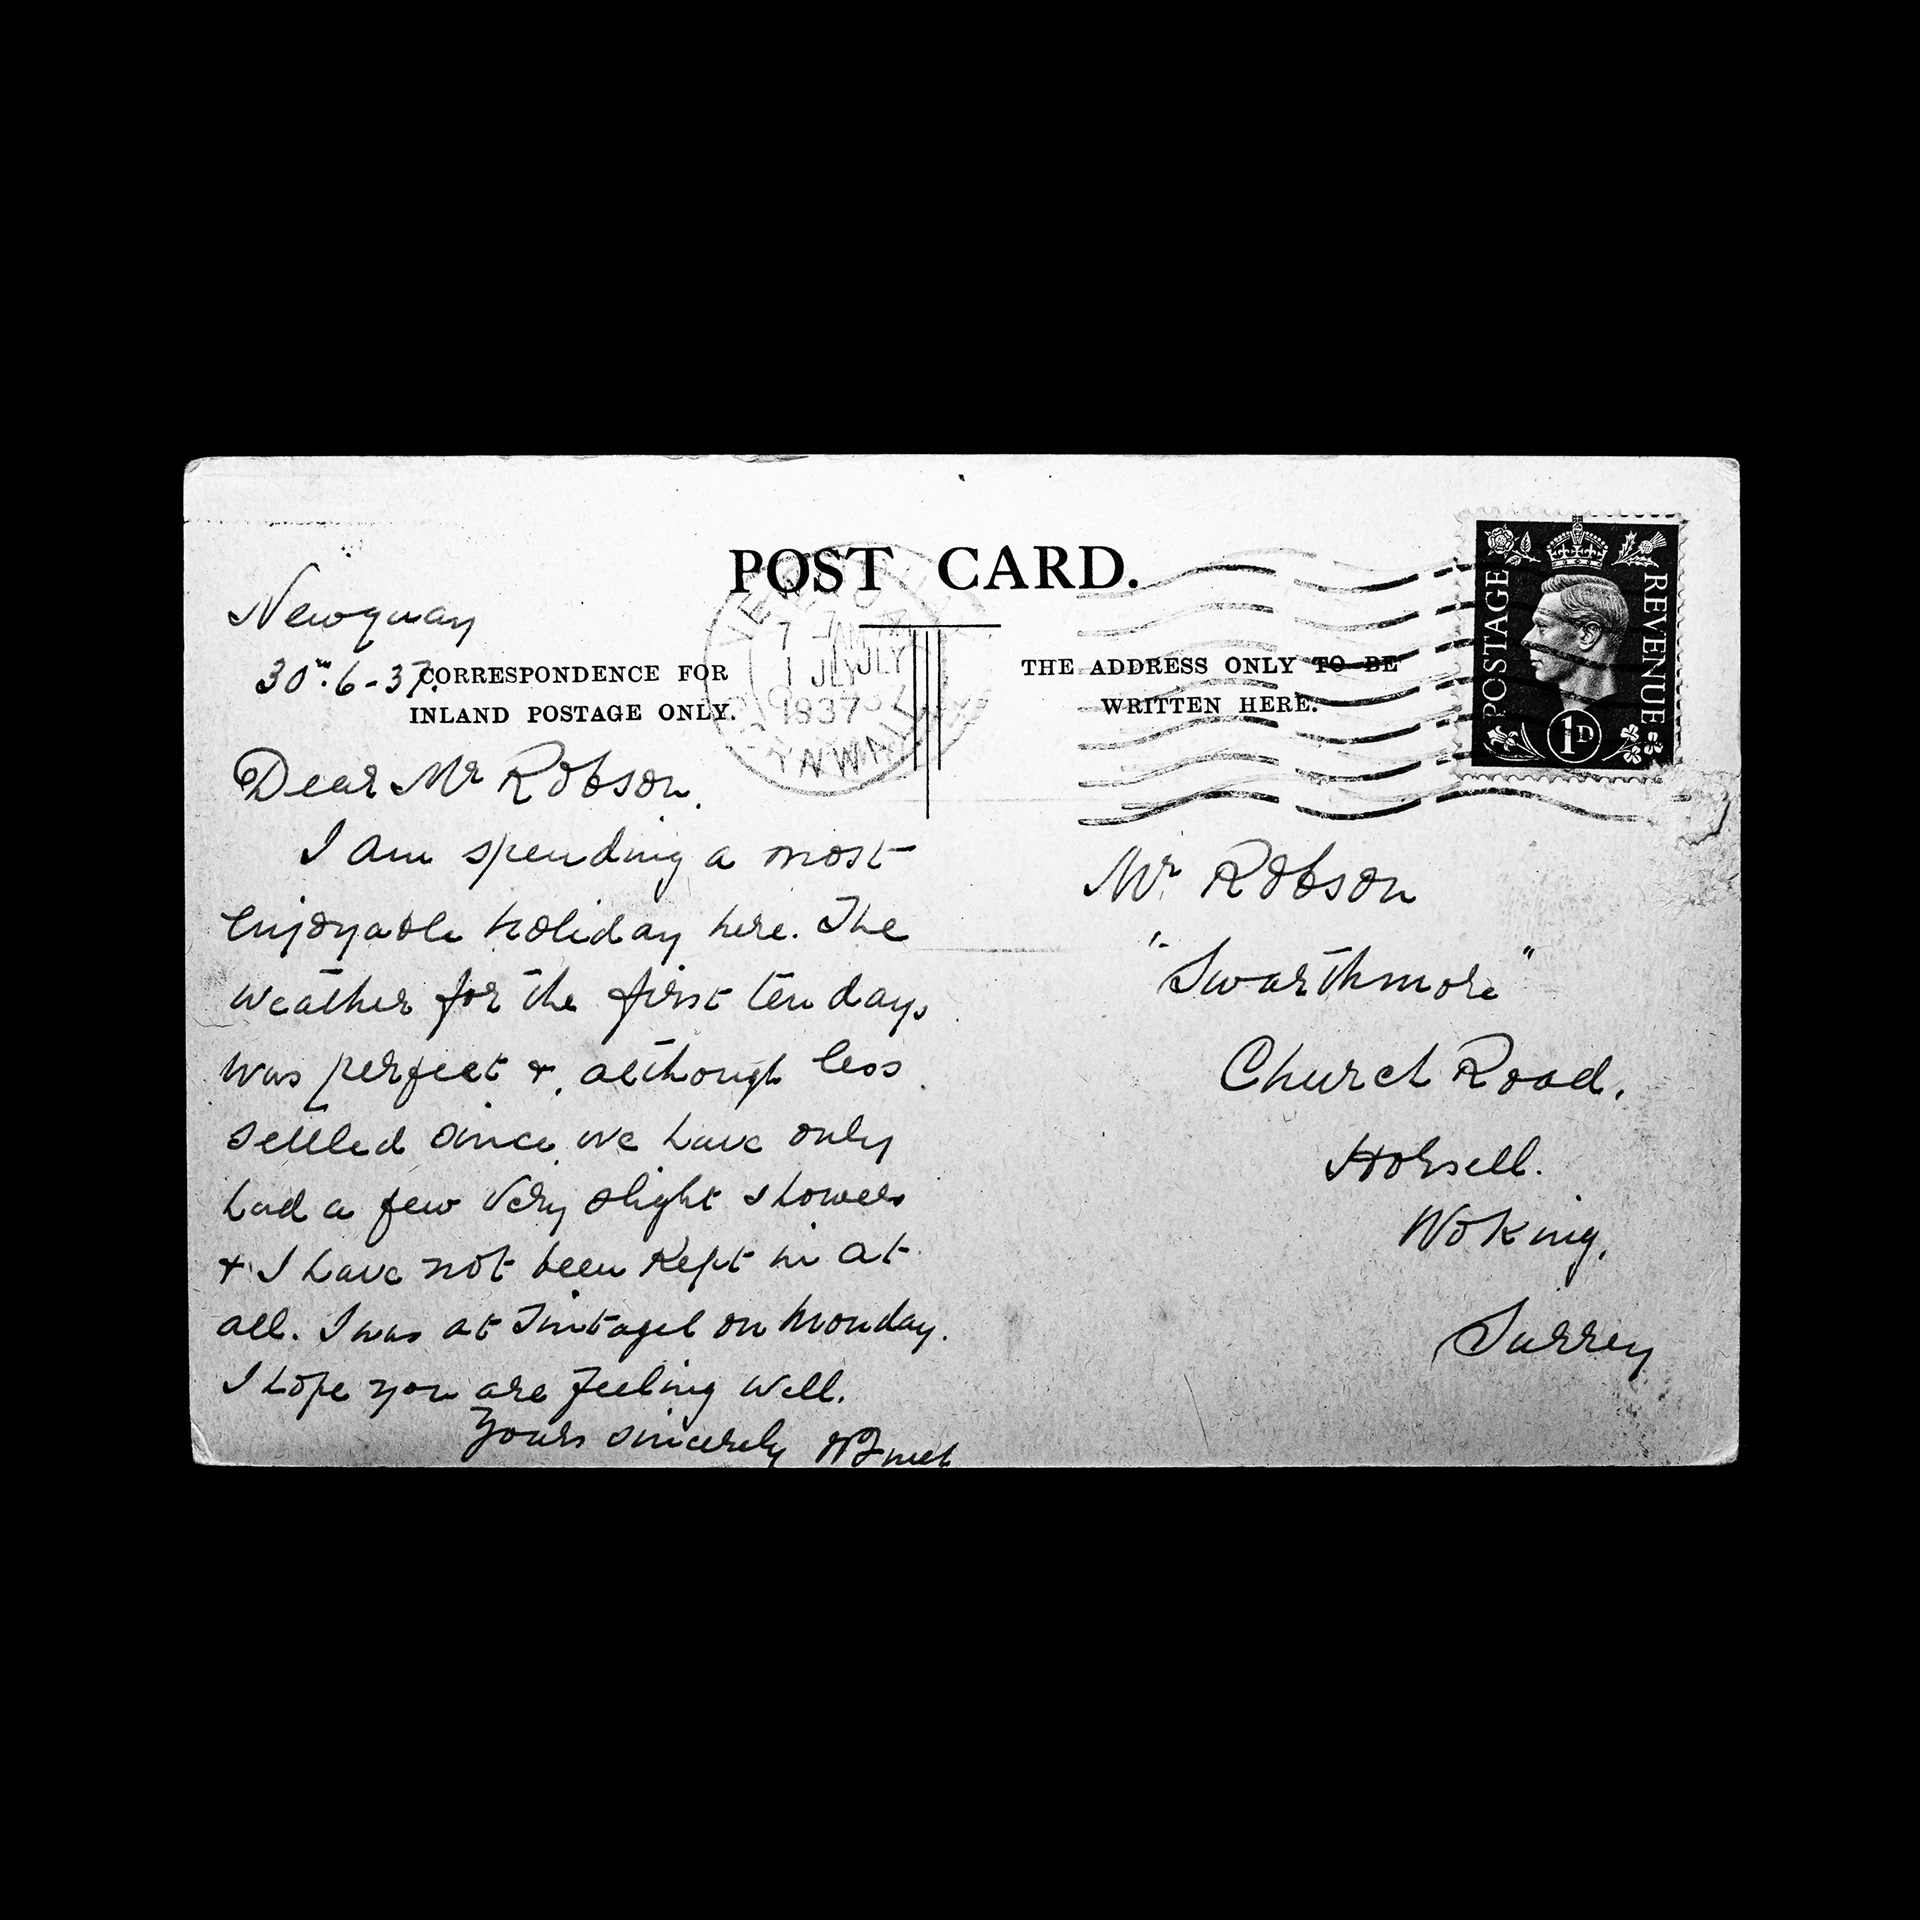 POST CARD.
CORRESPONDENCE FOR
INLAND POSTAGE ONLY.
THE ADDRESS ONLY TO BE
WRITTEN HERE.
POSTAGE
REVENUE
1D
7 AM
1 JLY
1937
Newquay
30th. 6-37.
Dear Mr Robson,
I am spending a most
enjoyable holiday here. The
weather for the first ten days
was perfect &, although less
settled since, we have only
had a few very slight showers
& I have not been kept in at
all. I was at Tintagel on Monday.
I hope you are feeling well.
Yours sincerely
Mr. Robson
"Swarthmore"
Church Road,
Horsell.
Woking,
Surrey